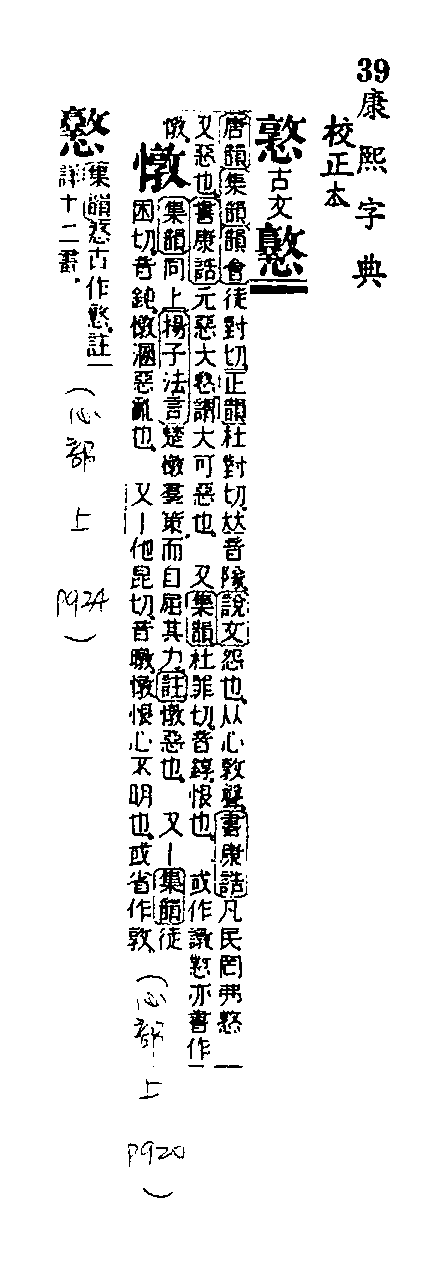 39康熙字典
校正本
憝古文𢤝
唐韻集韻韻會徒對切正韻杜對切𠀤音隊說文怨也从心敦聲書康誥凡民罔弗憝
又惡也書康誥元惡大憝謂大可惡也 又集韻杜罪切音錞恨也 或作譈憝亦書作
憞
憞集韻同上揚子法言楚憞羣策而自屈其力註憞惡也 又一集韻徒
困切音鈍憞溷惡亂也 又一他昆切音暾憞恨心不明也或省作敦
(心部 上 P920)
集韻憝古作註一
詳十二畫
(心部 上 P924)